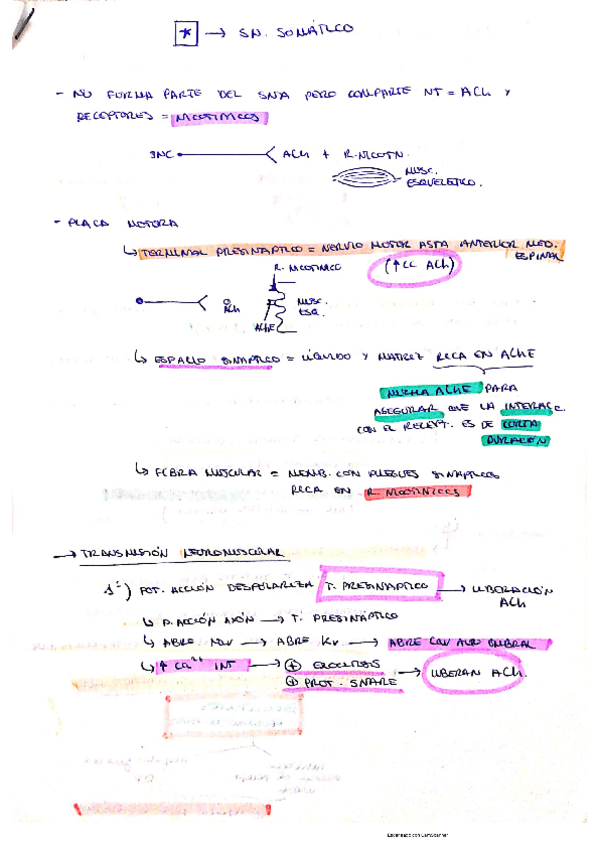 * → SN. SOMÁTICO
- NO FORMA PARTE DEL SNA PERO COMPARTE NT = ACh Y
RECEPTORES = NICOTINICOS
SNC ACh + R. NICOTN.
MUSC.
ESQUELETICO.
- PLACA MOTORA
↳ TERMINAL PRESINÁPTICO = NERVIO MOTOR ASTA ANTERIOR MED.
ESPINAL
R. NICOTINICO (↑CC ACh)
ACh MUSC.
ESQ.
AChE
↳ ESPACIO SINAPTICO = LÍQUIDO Y MATRIZ RICA EN AChE
MUCHA AChE PARA
ASEGURAR QUE LA INTERACC.
CON EL RECEPT. ES DE CORTA
DURACIÓN
↳ FIBRA MUSCULAR = MEMB. CON PLIEGUES SINAPTICOS
RICA EN R. NICOTINICOS
→ TRANSMISIÓN NEUROMUSCULAR
1º) POT. ACCIÓN DESPOLARIZA T. PRESINAPTICO → LIBERACIÓN
ACh
↳ P. ACCIÓN AXÓN → T. PRESINÁPTICO
↳ ABRE Nav → ABRE Kv → ABRE Cav ALTO UMBRAL
↳ ↑ Ca²⁺ INT → ⊕ EXOCITOSIS
⊕ PROT. SNARE → LIBERAN ACh.
Escaneado con CamScanner